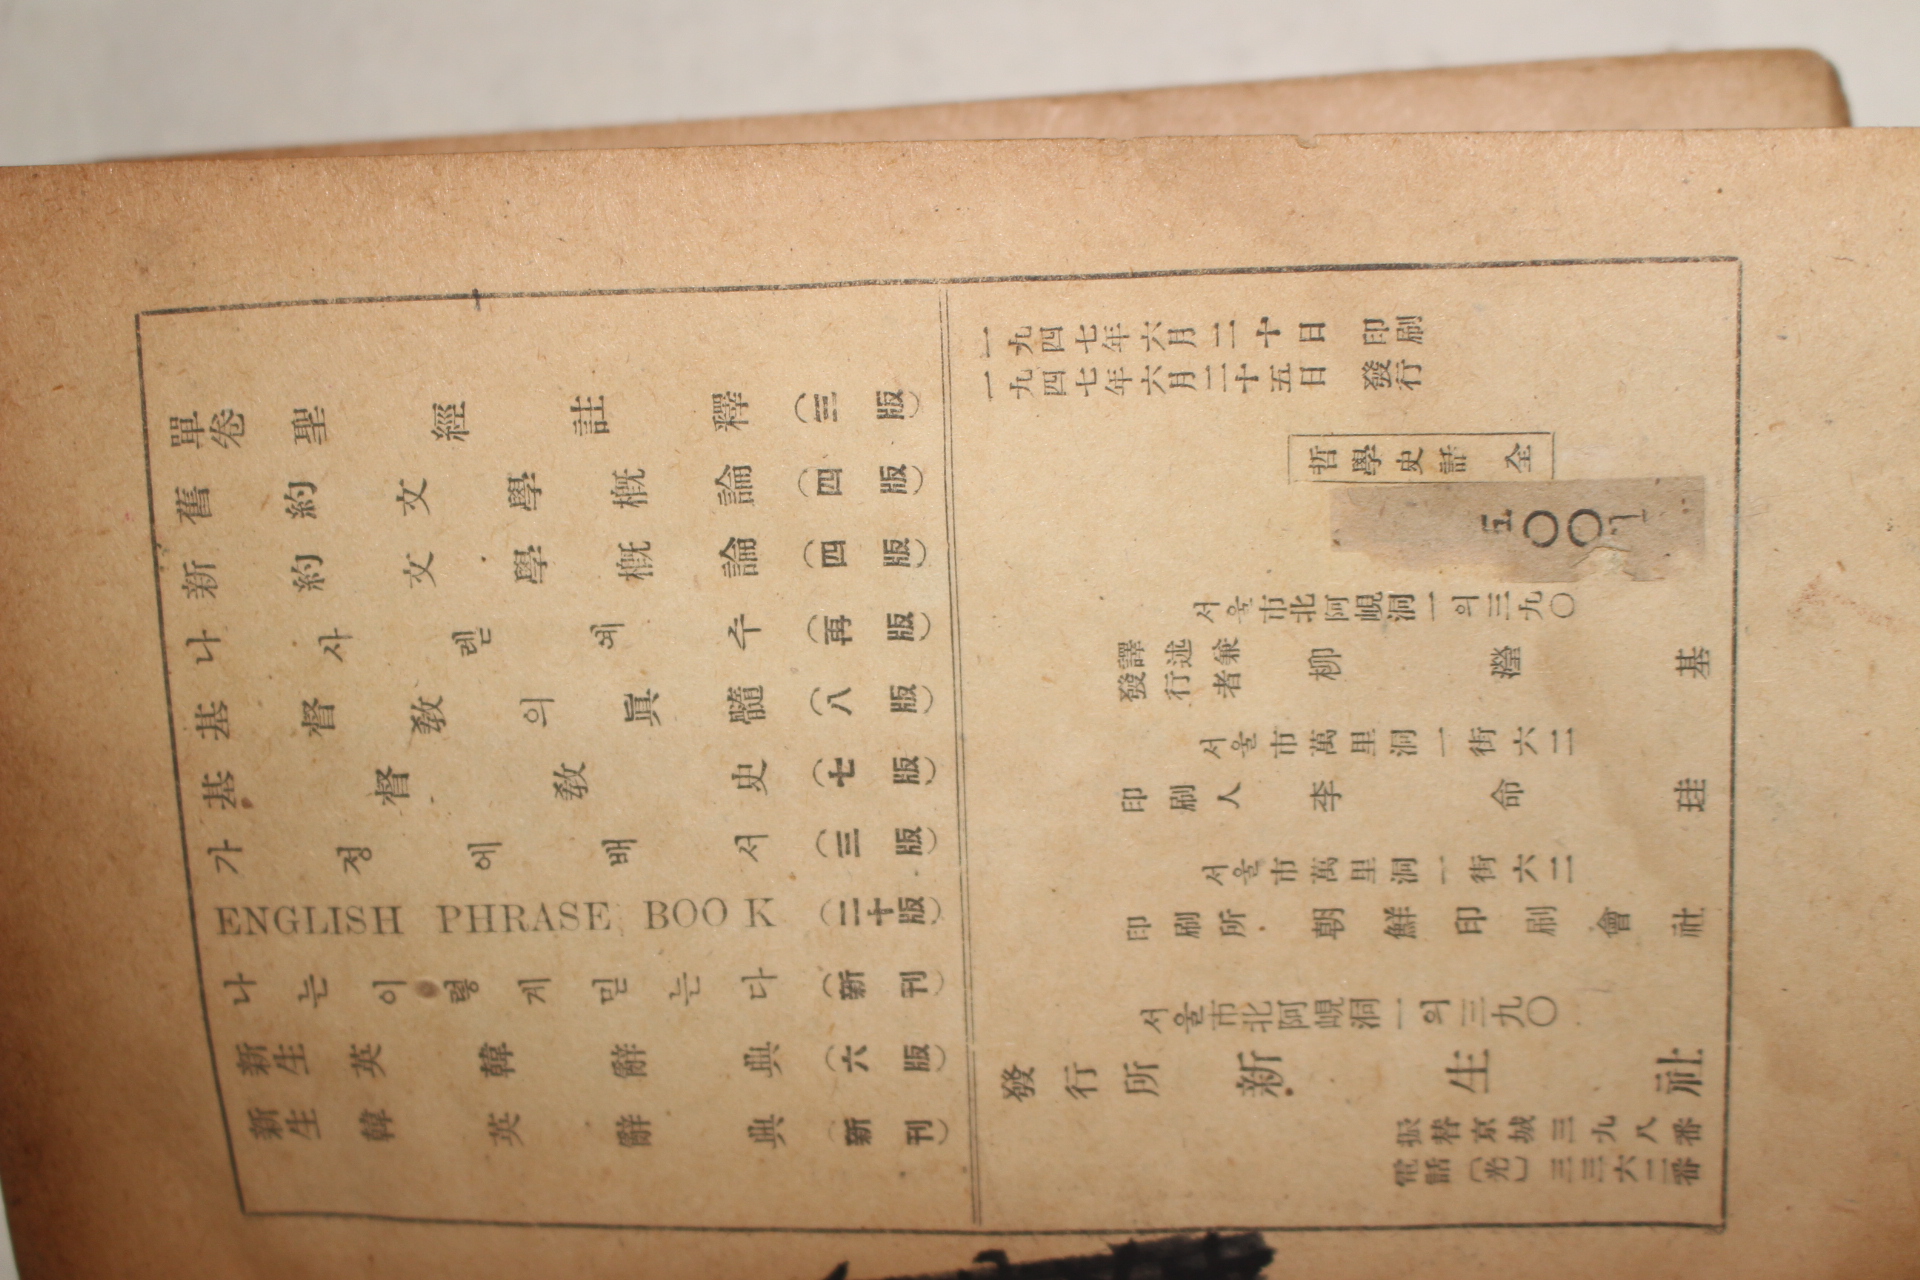 單卷聖經註釋(三版)
舊約文學槪論(四版)
新約文學槪論(四版)
나사렛예수(再版)
基督敎의眞髓(八版)
基督敎史(七版)
가정에배서(三版)
ENGLISH PHRASE BOOK(二十版)
나는이렇게믿는다(新刊)
新生英韓辭典(六版)
新生韓英辭典(新刊)
一九四七年六月二十日 印刷
一九四七年六月二十五日 發行
哲學史話 全
서울市北阿峴洞一의三九〇
譯述兼發行者 柳瀅基
서울市萬里洞一街六二
印刷人 李命珪
서울市萬里洞一街六二
印刷所 朝鮮印刷會社
서울市北阿峴洞一의三九〇
發行所 新生社
振替京城三三九八番
電話(光)三三六二番